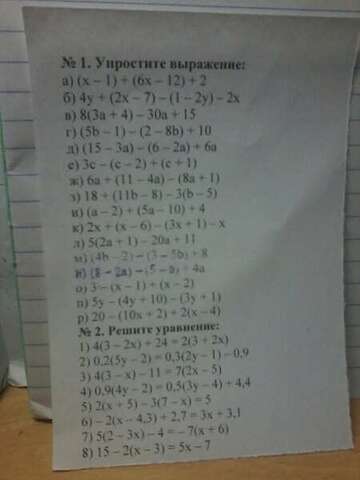 № 1. Упростите выражение:
а) (x – 1) + (6x – 12) + 2
б) 4y + (2x – 7) – (1 – 2y) – 2x
в) 8(3a + 4) – 30a + 15
г) (5b – 1) – (2 – 8b) + 10
д) (15 – 3a) – (6 – 2a) + 6a
е) 3c – (c – 2) + (c + 1)
ж) 6a + (11 – 4a) – (8a + 1)
з) 18 + (11b – 8) – 3(b – 5)
и) (a – 2) + (5a – 10) + 4
к) 2x + (x – 6) – (3x + 1) – x
л) 5(2a + 1) – 20a + 11
м) (4b – 2) – (3 – 5b) + 8
н) (8 – 2a) – (5 – a) + 4a
о) 3 – (x – 1) + (x – 2)
п) 5y – (4y + 10) – (3y + 1)
р) 20 – (10x + 2) + 2(x – 4)
№ 2. Решите уравнение:
1) 4(3 – 2x) + 24 = 2(3 + 2x)
2) 0,2(5y – 2) = 0,3(2y – 1) – 0,9
3) 4(3 – x) – 11 = 7(2x – 5)
4) 0,9(4y – 2) = 0,5(3y – 4) + 4,4
5) 2(x + 5) – 3(7 – x) = 5
6) – 2(x – 4,3) + 2,7 = 3x + 3,1
7) 5(2 – 3x) – 4 = – 7(x + 6)
8) 15 – 2(x – 3) = 5x – 7